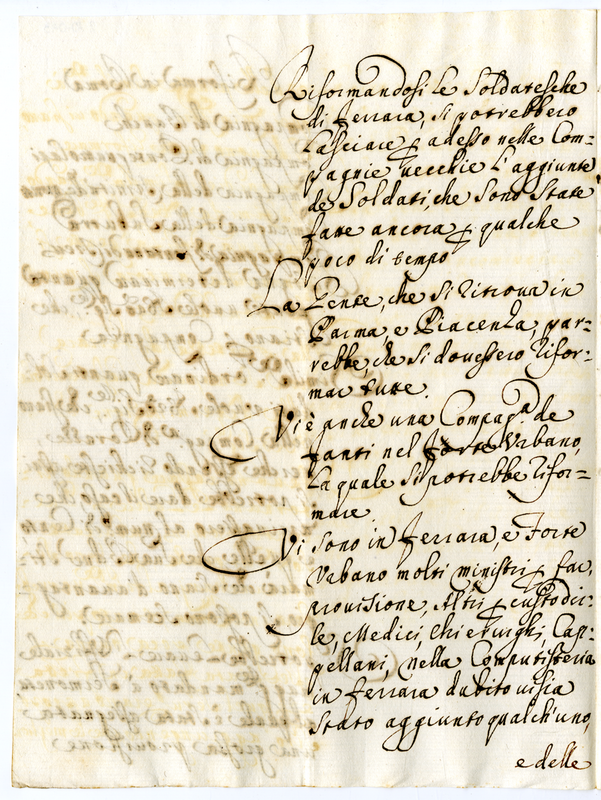 Riformandosi le Soldatesche
di Ferrara, si potrebbero
lasciare p adesso nelle Com=
pagnie vecchie l'aggiunte
de Soldati, che sono state
fatte ancora p qualche
poco di tempo
La Gente, che si ritroua in
Parma, e Piacenza, par=
rebbe, che si douessero rifor=
mar tutte.
Vi è anche una Compag.a de
fanti nel forte Vrbano,
la quale si potrebbe rifor=
mare
Vi sono in Ferrara, e Forte
Vrbano molti ministri p far
prouisione, Altri p custodir=
le, Medici, Chierurghi, Cap=
pellani, nella Computisteria
in Ferrara dubito ui sia
stato aggiunto qualch'uno,
e delle